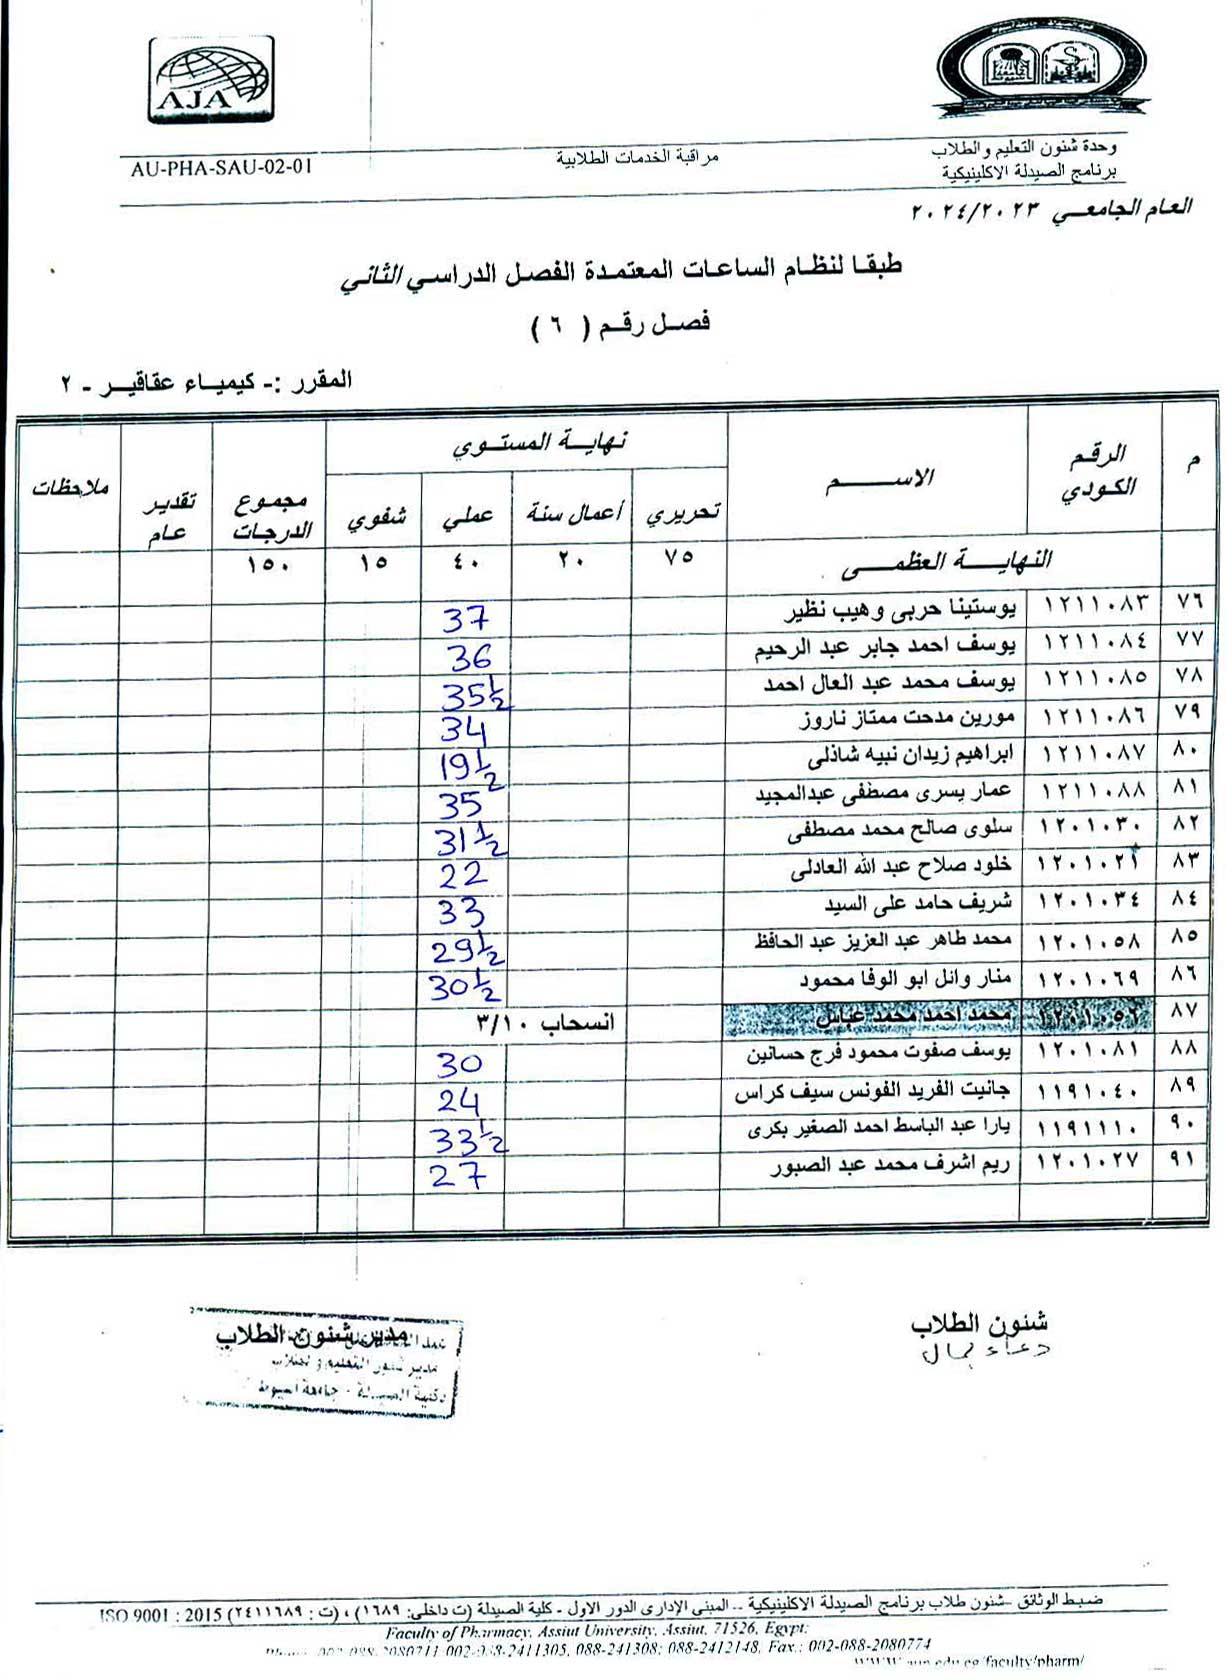 AJA
وحدة شئون التعليم والطلاب
برنامج الصيدلة الاكلينيكية
مراقبة الخدمات الطلابية
AU-PHA-SAU-02-01
العام الجامعي ٢٠٢٤/٢٠٢٣
طبقا لنظام الساعات المعتمدة الفصل الدراسي الثاني
فصل رقم ( ٦ )
المقرر :- كيمياء عقاقير - ٢
م الرقم الكودي الاسم نهاية المستوي مجموع الدرجات تقدير عام ملاحظات
تحريري أعمال سنة عملي شفوي
النهاية العظمى ٧٥ ٢٠ ٤٠ ١٥ ١٥٠
٧٦ ١٢١١٠٨٣ يوستينا حربى وهيب نظير 37
٧٧ ١٢١١٠٨٤ يوسف احمد جابر عبد الرحيم 36
٧٨ ١٢١١٠٨٥ يوسف محمد عبد العال احمد 35½
٧٩ ١٢١١٠٨٦ مورين مدحت ممتاز ناروز 34
٨٠ ١٢١١٠٨٧ ابراهيم زيدان نبيه شاذلى 19½
٨١ ١٢١١٠٨٨ عمار يسرى مصطفى عبدالمجيد 35
٨٢ ١٢٠١٠٣٠ سلوى صالح محمد مصطفى 31½
٨٣ ١٢٠١٠٢١ خلود صلاح عبد الله العادلى 22
٨٤ ١٢٠١٠٣٤ شريف حامد على السيد 33
٨٥ ١٢٠١٠٥٨ محمد طاهر عبد العزيز عبد الحافظ 29½
٨٦ ١٢٠١٠٦٩ منار وائل ابو الوفا محمود 30½
٨٧ ١٢٠١٠٥٢ محمد احمد محمد عباس انسحاب ٣/١٠
٨٨ ١٢٠١٠٨١ يوسف صفوت محمود فرج حسانين 30
٨٩ ١١٩١٠٤٠ جانيت الفريد الفونس سيف كراس 24
٩٠ ١١٩١١١٠ يارا عبد الباسط احمد الصغير بكرى 33½
٩١ ١٢٠١٠٢٧ ريم اشرف محمد عبد الصبور 27
شئون الطلاب
دعاء جمال
مدير شئون الطلاب
مدير شئون التعليم والطلاب
كلية الصيدلة - جامعة اسيوط
ضبط الوثائق -شئون طلاب برنامج الصيدلة الاكلينيكية -- المبنى الإدارى الدور الاول - كلية الصيدلة (ت داخلى: ١٦٨٩) ، (ت : ٢٤١١٦٨٩) ISO 9001 : 2015
Faculty of Pharmacy, Assiut University, Assiut, 71526, Egypt;
Phone: 002-088-2080711 002-088-2411305, 088-241308; 088-2412148, Fax.: 002-088-2080774
www.aun.edu.eg/faculty/pharm/